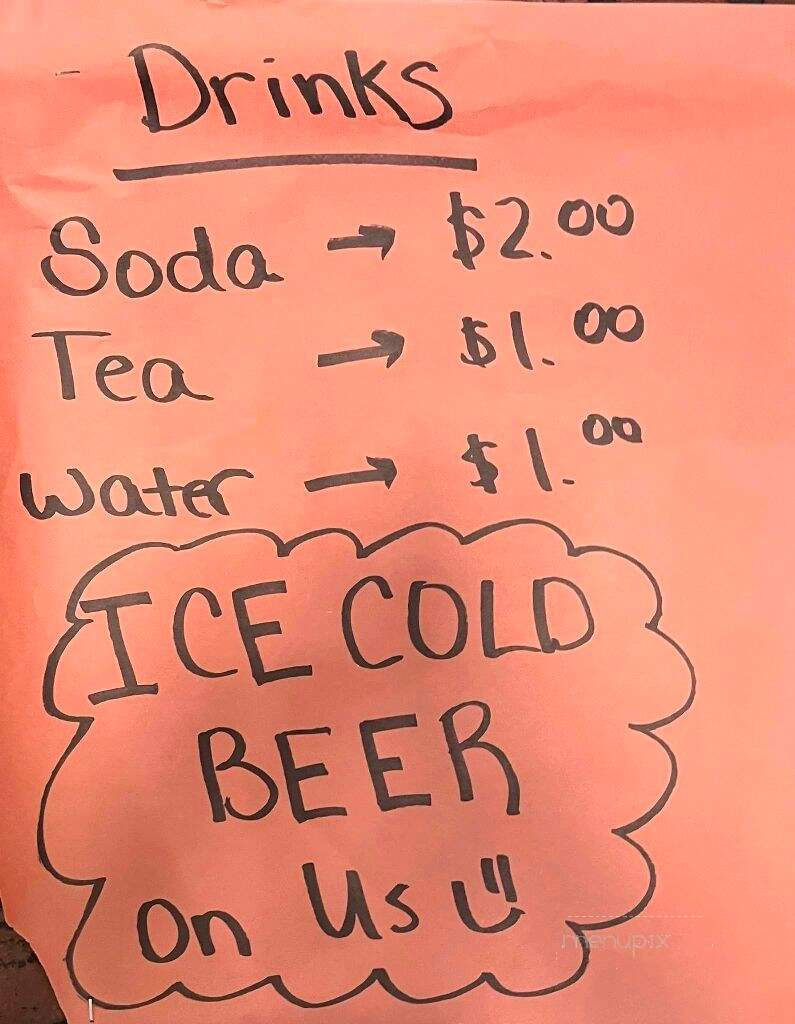 Drinks
Soda → $2.00
Tea → $1.00
Water → $1.00
ICE COLD
BEER
On Us
menupix